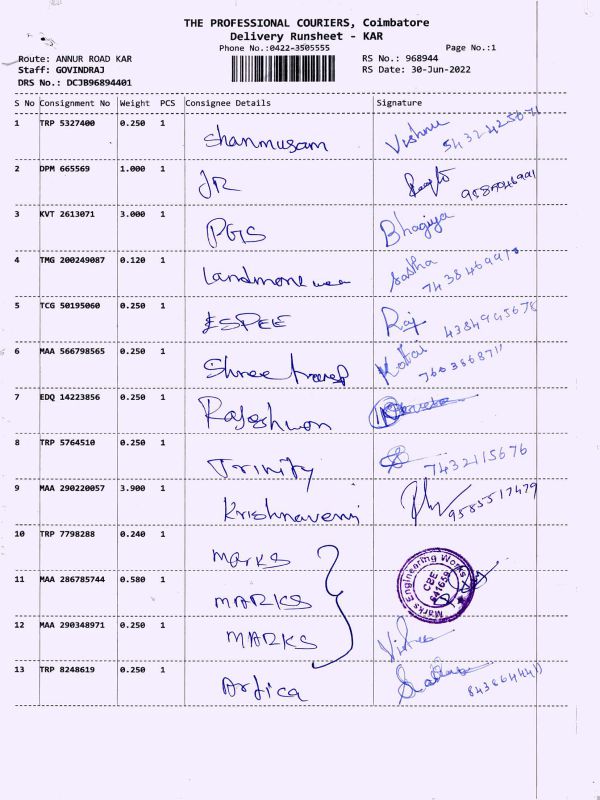 THE PROFESSIONAL COURIERS, Coimbatore
Delivery Runsheet - KAR
Phone No.:0422-3505555 Page No.:1
Route: ANNUR ROAD KAR RS No.: 968944
Staff: GOVINDRAJ RS Date: 30-Jun-2022
DRS No.: DCJB96894401
S No Consignment No Weight PCS Consignee Details Signature
1 TRP 5327400 0.250 1 Shanmugam Vishnu
2 DPM 665569 1.000 1 JR
3 KVT 2613071 3.000 1 PGS Bhagiya
4 TMG 200249087 0.120 1 Landmark
5 TCG 50195060 0.250 1 ESPEE Raj
6 MAA 566798565 0.250 1 Shree
7 EDQ 14223856 0.250 1
8 TRP 5764510 0.250 1 Trinity 7432115676
9 MAA 290220057 3.900 1 Krishnaveni 9585517479
10 TRP 7798288 0.240 1 MARKS
11 MAA 286785744 0.580 1 MARKS Marks Engineering Works CBE 641659
12 MAA 290348971 0.250 1 MARKS
13 TRP 8248619 0.250 1 Artica